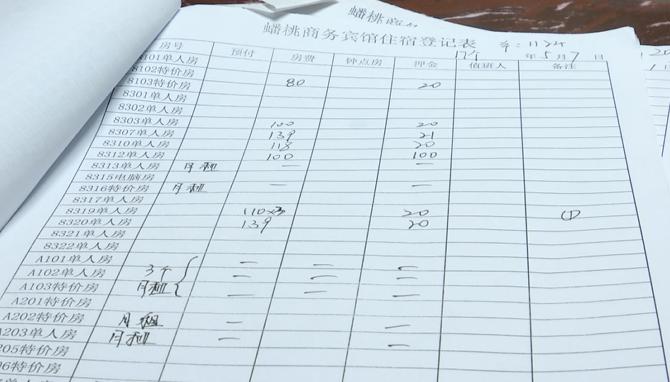 蟠桃商务宾馆住宿登记表
年5月7日
房号 预付 房费 钟点房 押金 值班人 备注
8101单人房
8102特价房
8103特价房 80 20
8301单人房
8302单人房
8303单人房 100 20
8307单人房 139 21
8310单人房 118 20
8312单人房 100 100
8313单人房 月租 — —
8315电脑房
8316特价房 月租 — —
8317单人房
8319单人房 110×3 20 (1)
8320单人房 139 20
8321单人房
8322单人房
A101单人房 — — —
A102单人房 3个 — — —
A103特价房 月租 — — —
A201特价房
A202特价房 月租 — —
A203单人房 月租 — —
205特价房
06特价房